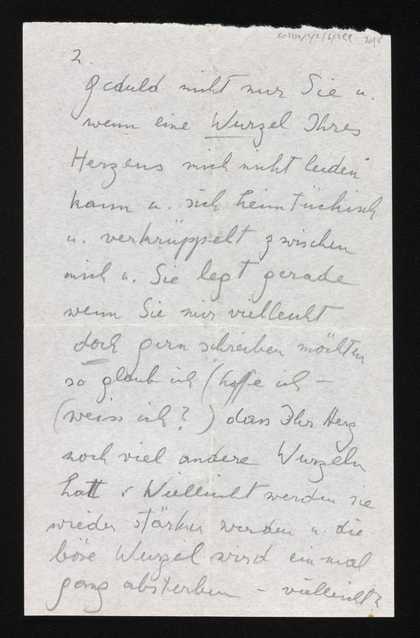 2.
Geduld nicht nur Sie u.
wenn eine Wurzel Ihres
Herzens mich nicht leiden
kann u. sich heimtückisch
u. verkrüppelt zwischen
mich u. Sie legt gerade
wenn Sie mir vielleicht
doch gern schreiben möchten
so glaub ich (hoffe ich –
(weiss ich?) dass Ihr Herz
noch viel andere Wurzeln
hat Vielleicht werden sie
wieder stärker werden u. die
böse Wurzel wird einmal
ganz absterben – vielleicht?